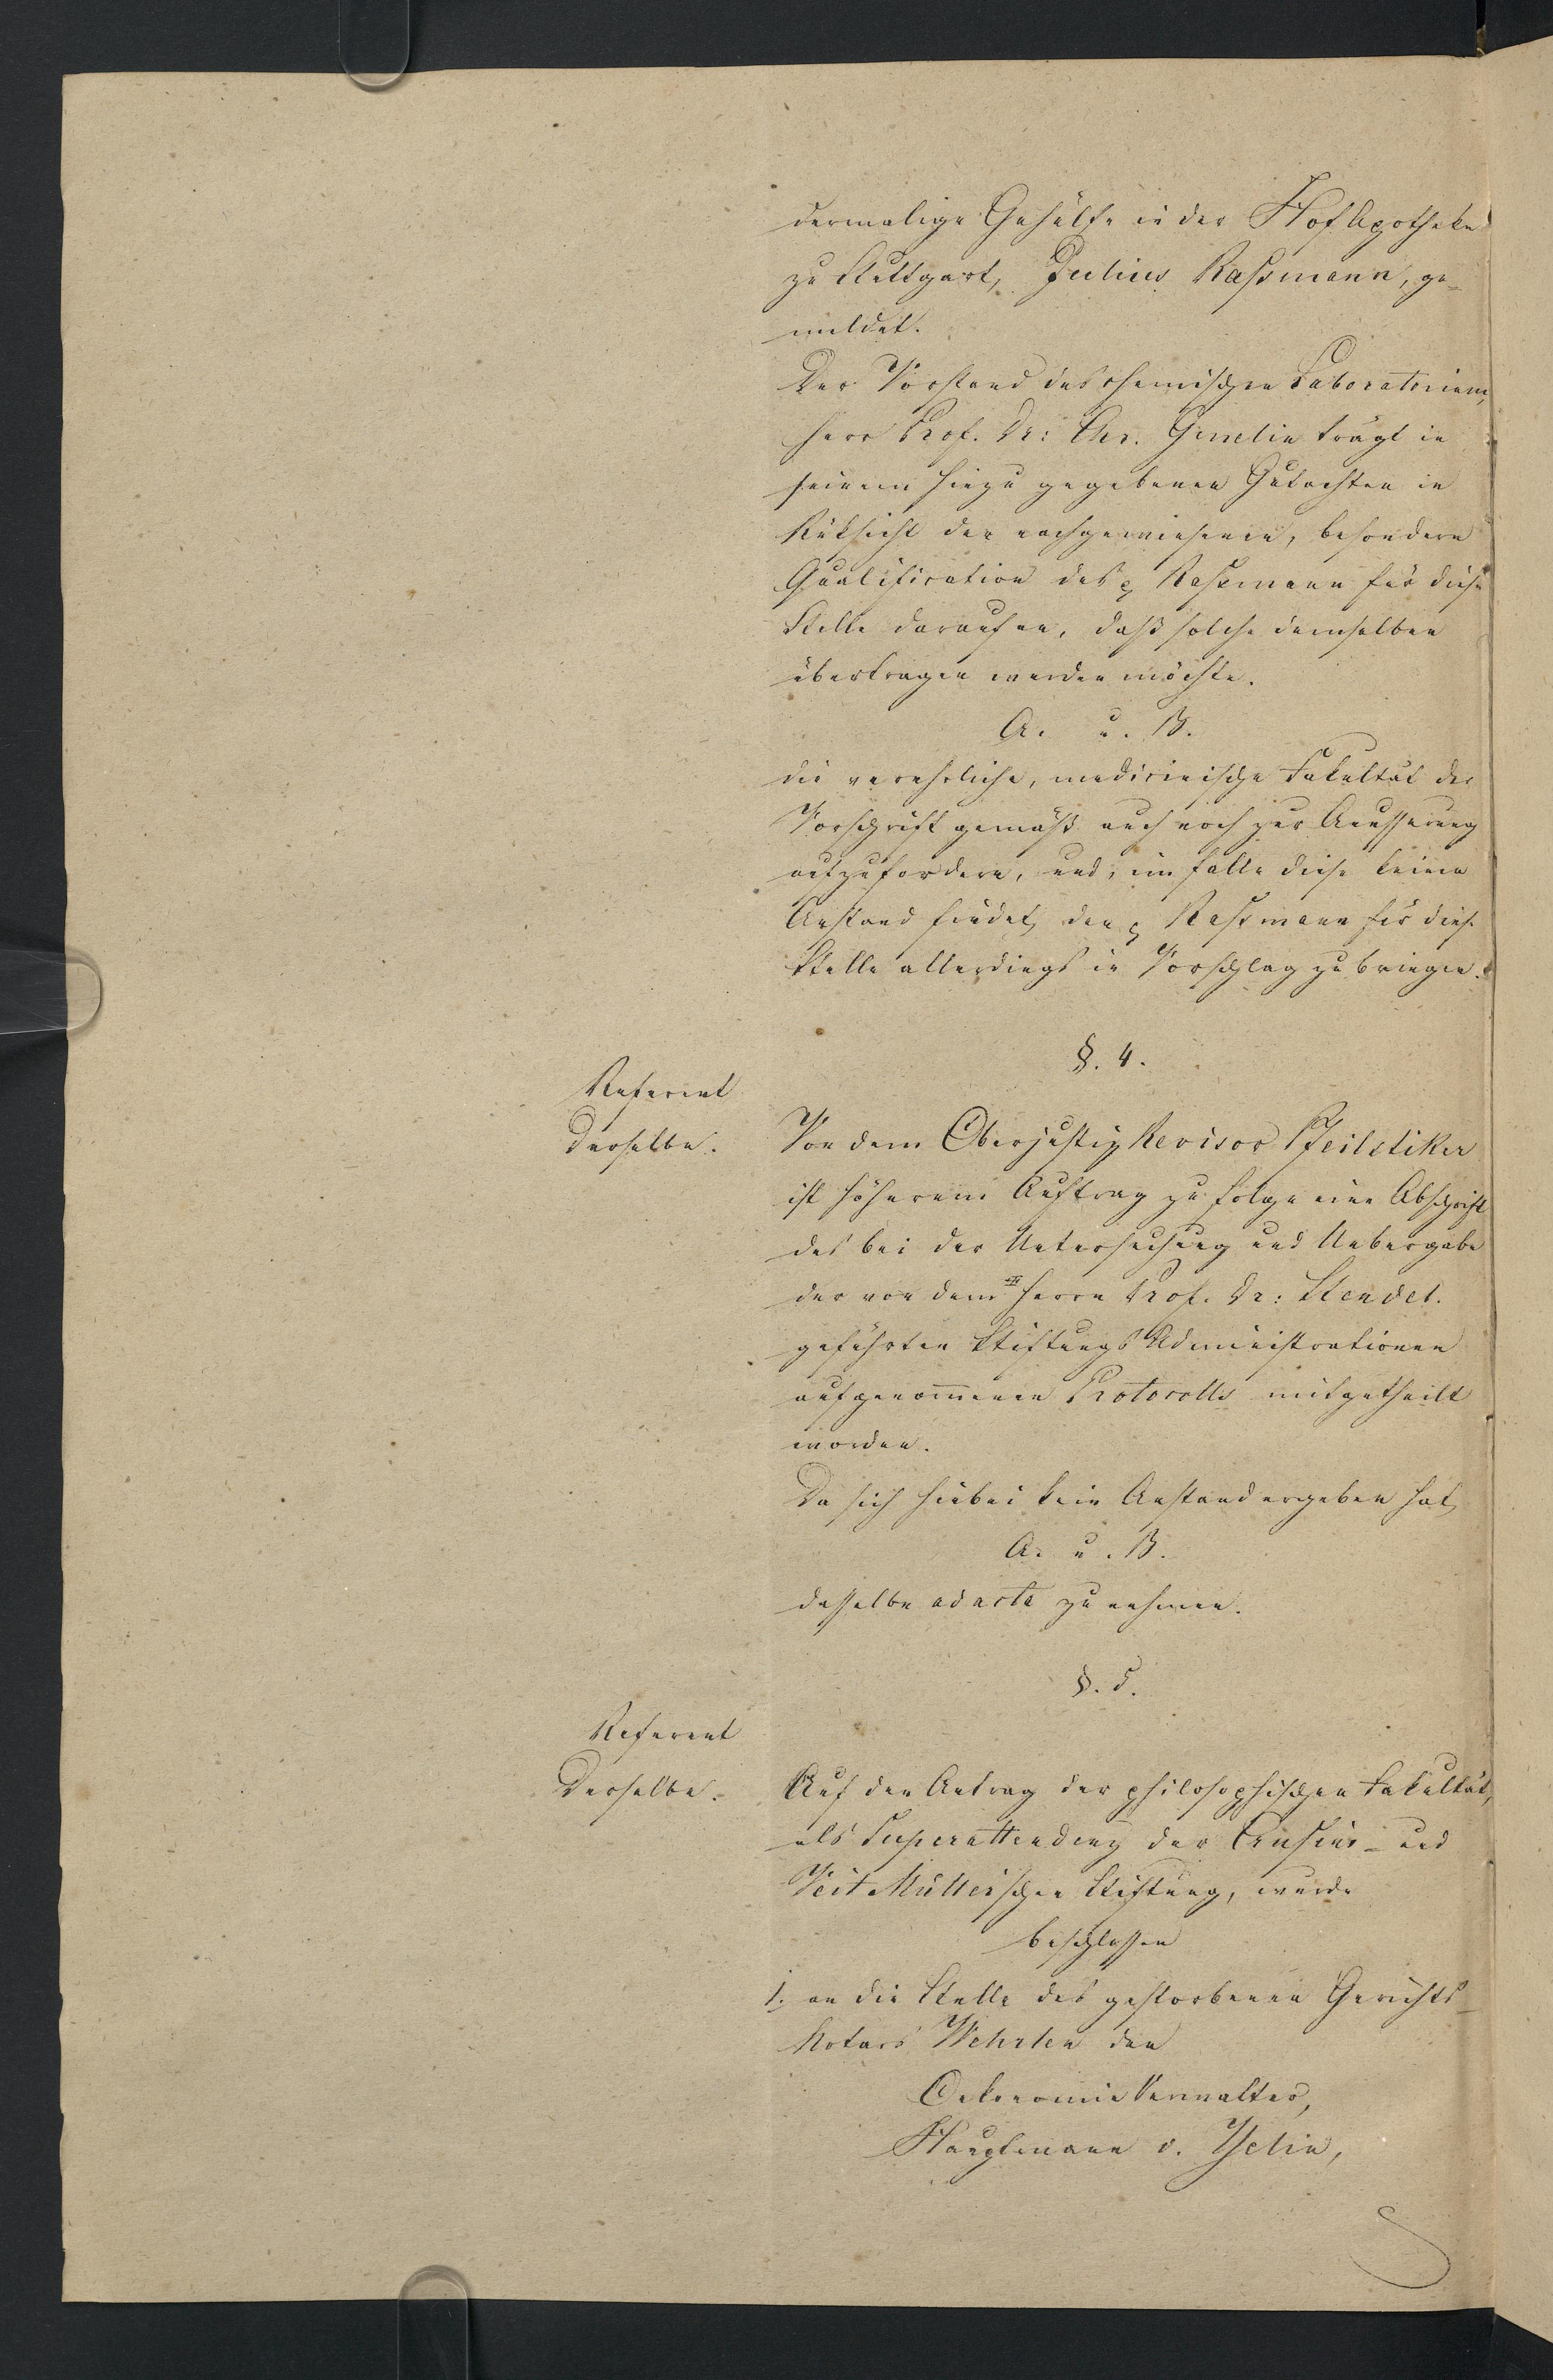 dermalige Gehülfe in der Hof Apotheke
zu Stuttgart, Julius Kaßmann, ge-
meldet.
Der Vorstand des chemischen Laboratorium,
Herr Prof. Dr: Chr. Gmelin trägt in
seinem hiezu gegebenen Gutachten in
Rüksicht der nachgewiesenen, besondern
Qualification des p Kaßmann für diese
Stelle darauf an, daß solche demselben
übertragen werden möchte.
A. u. B.
die verehrliche, medicinische Fakultät der
Vorschrift gemäß auch noch zur Aeusserung
aufzufordern, und, im Falle diese keinen
Anstand findet, den p Kaßmann für diese
Stelle allerdings in Vorschlag zu bringen.
§. 4.
Referent
derselbe.
Von dem Oberjustiz Revisor Pfeilstiker
ist höherem Auftrag zu folge eine Abschrift
des bei der Untersuchung und Uebergabe
der von dem Herrn Prof. Dr: Steudel.
geführten Stiftungs Administrationen
aufgenommenen Protocolls mitgetheilt
worden.
Da sich hiebei kein Anstand ergeben hat,
A. u. B.
dasselbe ad acta zu nehmen.
§. 5.
Referent
Derselbe.
Auf den Antrag der philosophischen Fakultät,
als Superattendenz der Crusius- und
Veit Müllerschen Stiftung, wurde
beschlossen
1. an die Stelle des gestorbenen Gerichts-
Notars Wehrlen den
Oekonomie Verwalter,
Hauptmann v. Yelin,